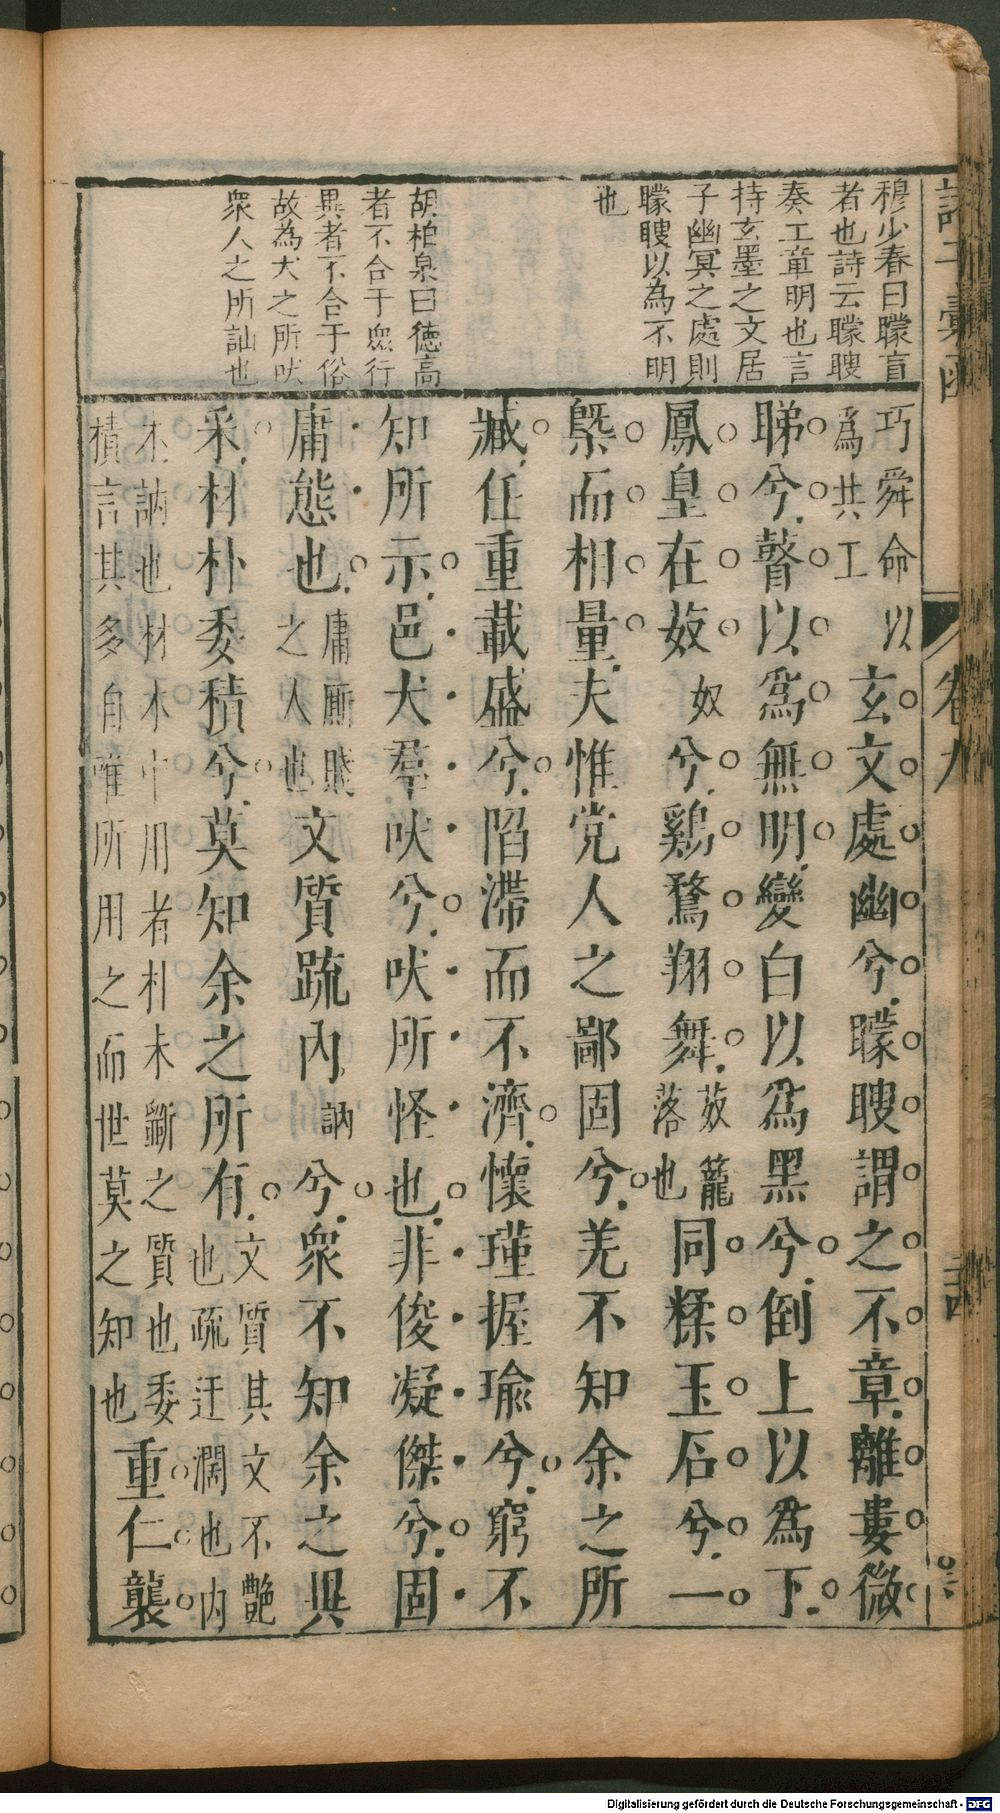 穆少春曰矇盲
者也詩云矇瞍
奏工章明也言
持玄墨之文居
子幽冥之處則
矇瞍以為不明
也
胡柏泉曰德高
者不合于衆行
異者不合于俗
故為犬之所吠
衆人之所訕也
巧舜命以
爲共工
玄文處幽兮矇瞍謂之不章離婁微
睇兮瞽以爲無明變白以爲黑兮倒上以爲下
鳳皇在笯奴兮鷄鶩翔舞笯籠
落也
同糅玉石兮一
槩而相量夫惟党人之鄙固兮羌不知余之所
臧任重載盛兮陷滯而不濟懷瑾握瑜兮窮不
知所示邑犬羣吠兮吠所怪也非俊凝傑兮固
庸態也庸厮賤
之人也
文質疏内訥兮衆不知余之異
釆材朴委積兮莫知余之所有文質其文不艶
也疏迂濶也内
木訥也材木中用者朴未斵之質也委
積言其多自唯所用之而世莫之知也
重仁襲
卷九
二十四
Digitalisierung gefördert durch die Deutsche Forschungsgemeinschaft - DFG